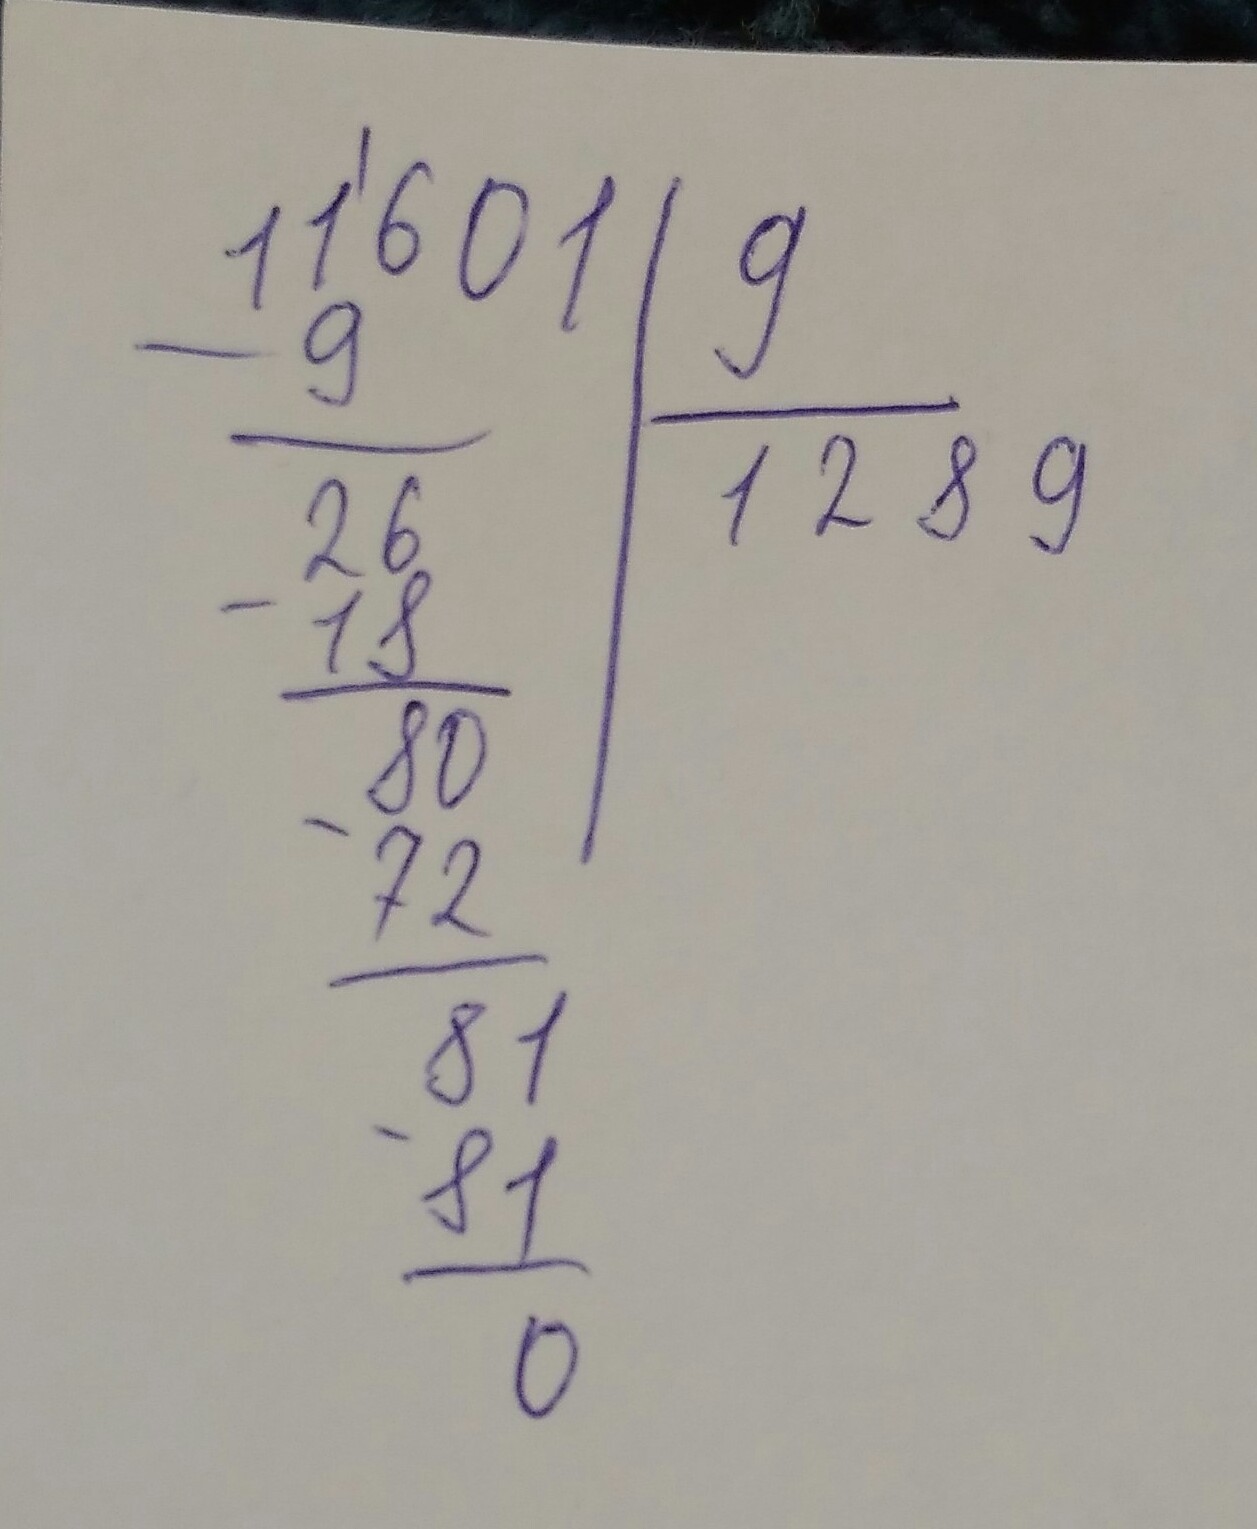 11'601 | 9
- 9
1289
26
- 18
80
- 72
81
- 81
0